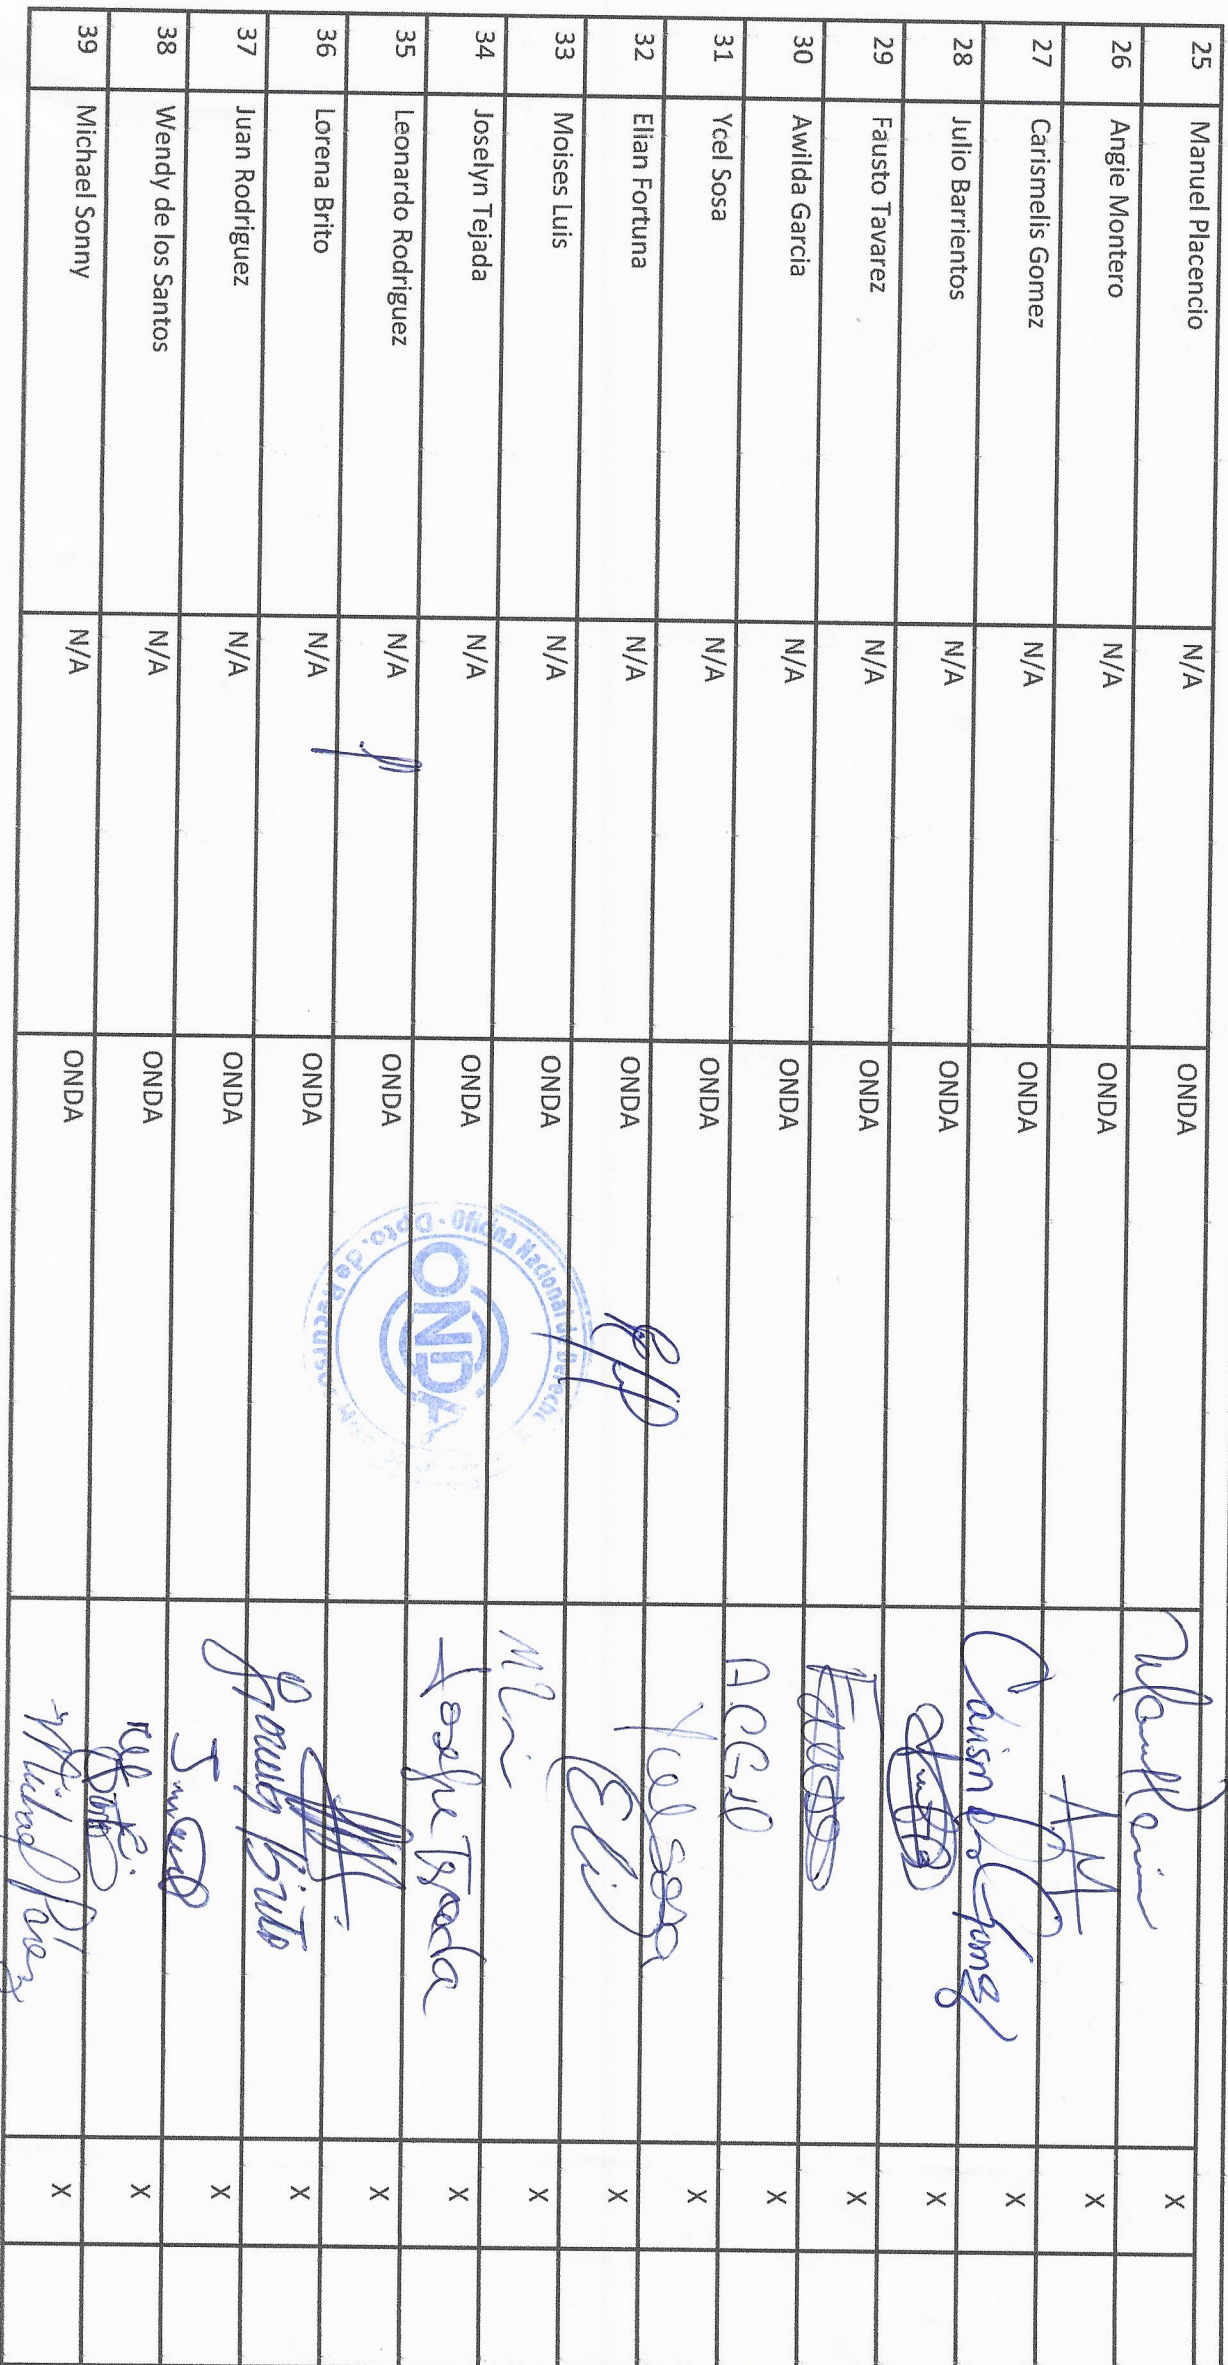 25 Manuel Placencio N/A ONDA X
26 Angie Montero N/A ONDA AM X
27 Carismelis Gomez N/A ONDA X
28 Julio Barrientos N/A ONDA X
29 Fausto Tavarez N/A ONDA X
30 Awilda Garcia N/A ONDA X
31 Ycel Sosa N/A ONDA Ycel Sosa X
32 Elian Fortuna N/A ONDA X
33 Moises Luis N/A ONDA X
34 Joselyn Tejada N/A ONDA Tejada X
35 Leonardo Rodriguez N/A ONDA X
36 Lorena Brito N/A ONDA Lorena Brito X
37 Juan Rodriguez N/A ONDA X
38 Wendy de los Santos N/A ONDA X
39 Michael Sonny N/A ONDA X
Oficina Nacional de Derecho
ONDA
Dpto. de Recursos